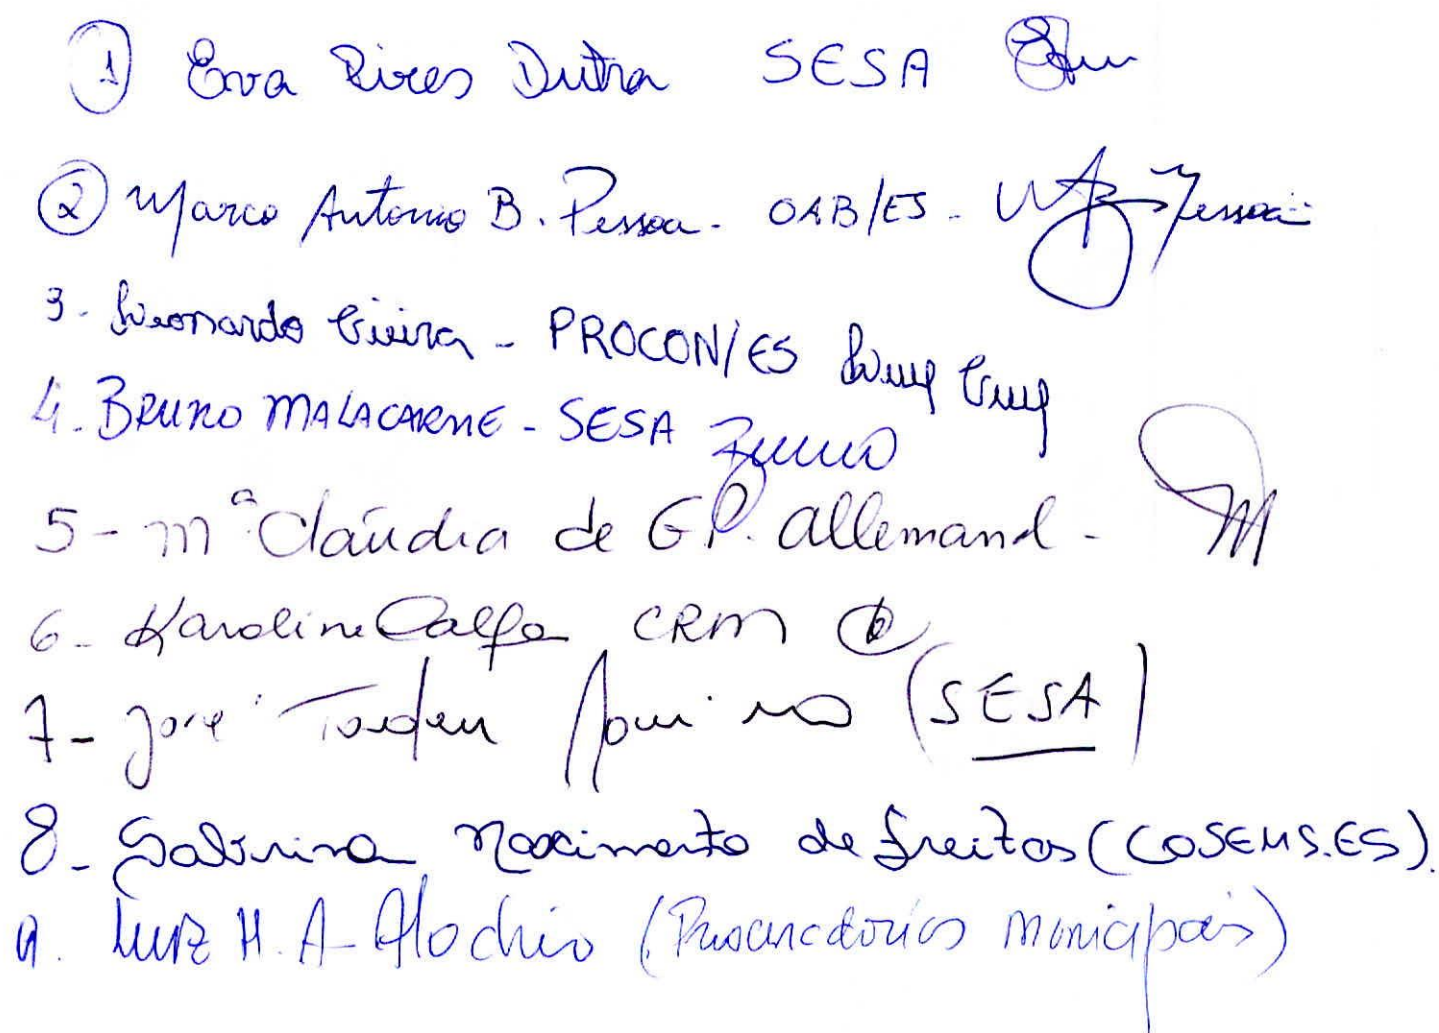 1 Eva Pires Dutra SESA
2 Marco Antonio B. Pessoa - OAB/ES - Pessoa
3 - Leonardo Vieira - PROCON/ES
4. BRUNO MALACARNE - SESA Bruno
5 - Mª Cláudia de G.P. Allemand -
6 - Karoline Calfa CRM
7 - José Tadeu Aquino (SESA)
8 - Sabrina Nascimento de Freitas (COSEMS.ES).
9. Luiz H. A. Alochio (Procuradorias Municipais)